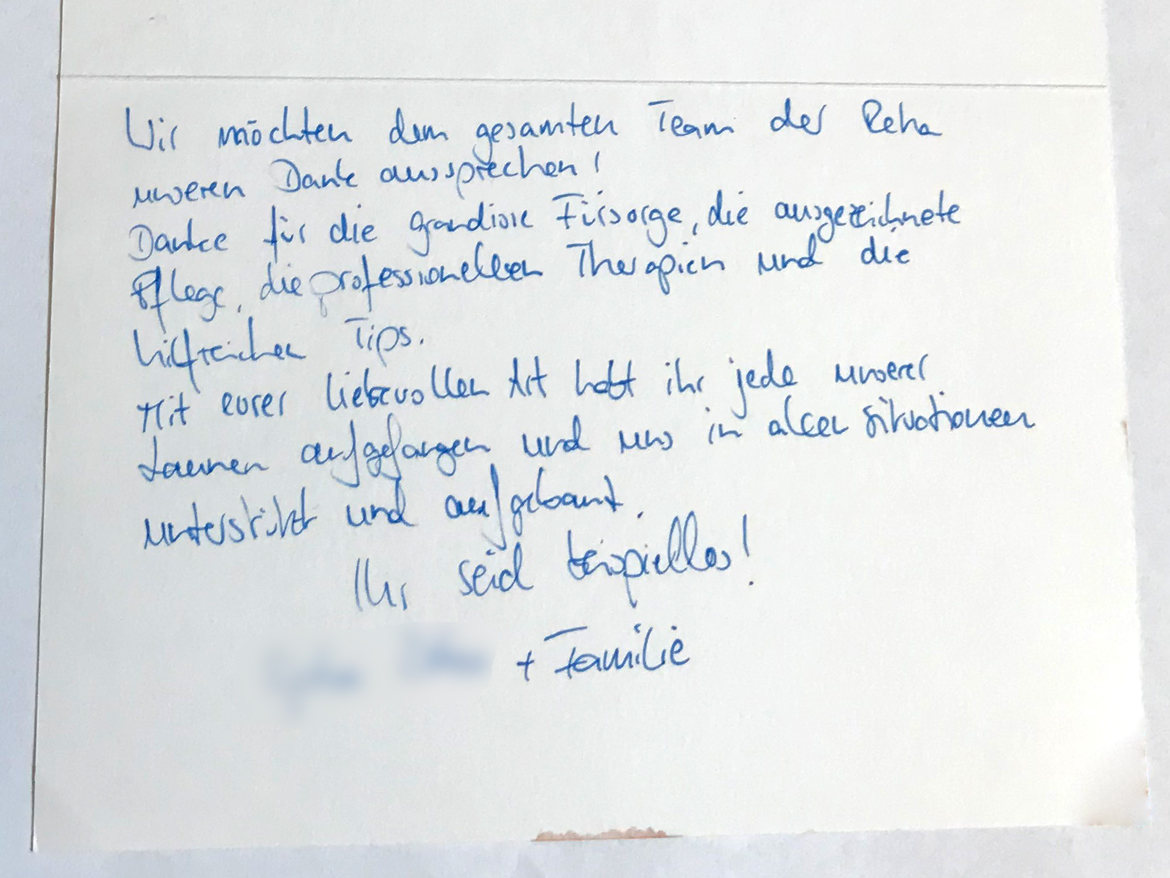 Wir möchten dem gesamten Team der Reha
unseren Dank aussprechen!
Danke für die grandiose Fürsorge, die ausgezeichnete
Pflege, die professionellen Therapien und die
hilfreichen Tips.
Mit eurer liebevollen Art habt ihr jede unserer
Launen aufgefangen und uns in allen Situationen
unterstützt und aufgebaut.
Ihr seid beispiellos!
+ Familie